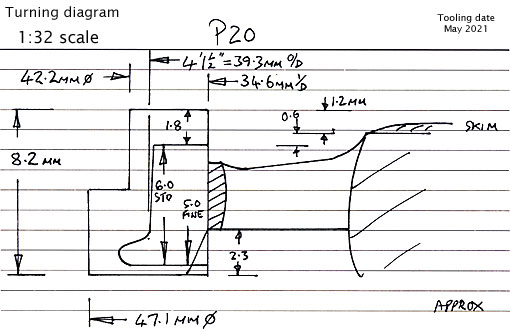 Turning diagram
1:32 scale
P20
Tooling date
May 2021
4' 1½" = 39.3MM O/D
42.2MM Ø
34.6MM I/D
1.2MM
0.6
1.8
SKIM
8.2 MM
6.0
STD
5.0
FINE
2.3
47.1MM Ø
APPROX